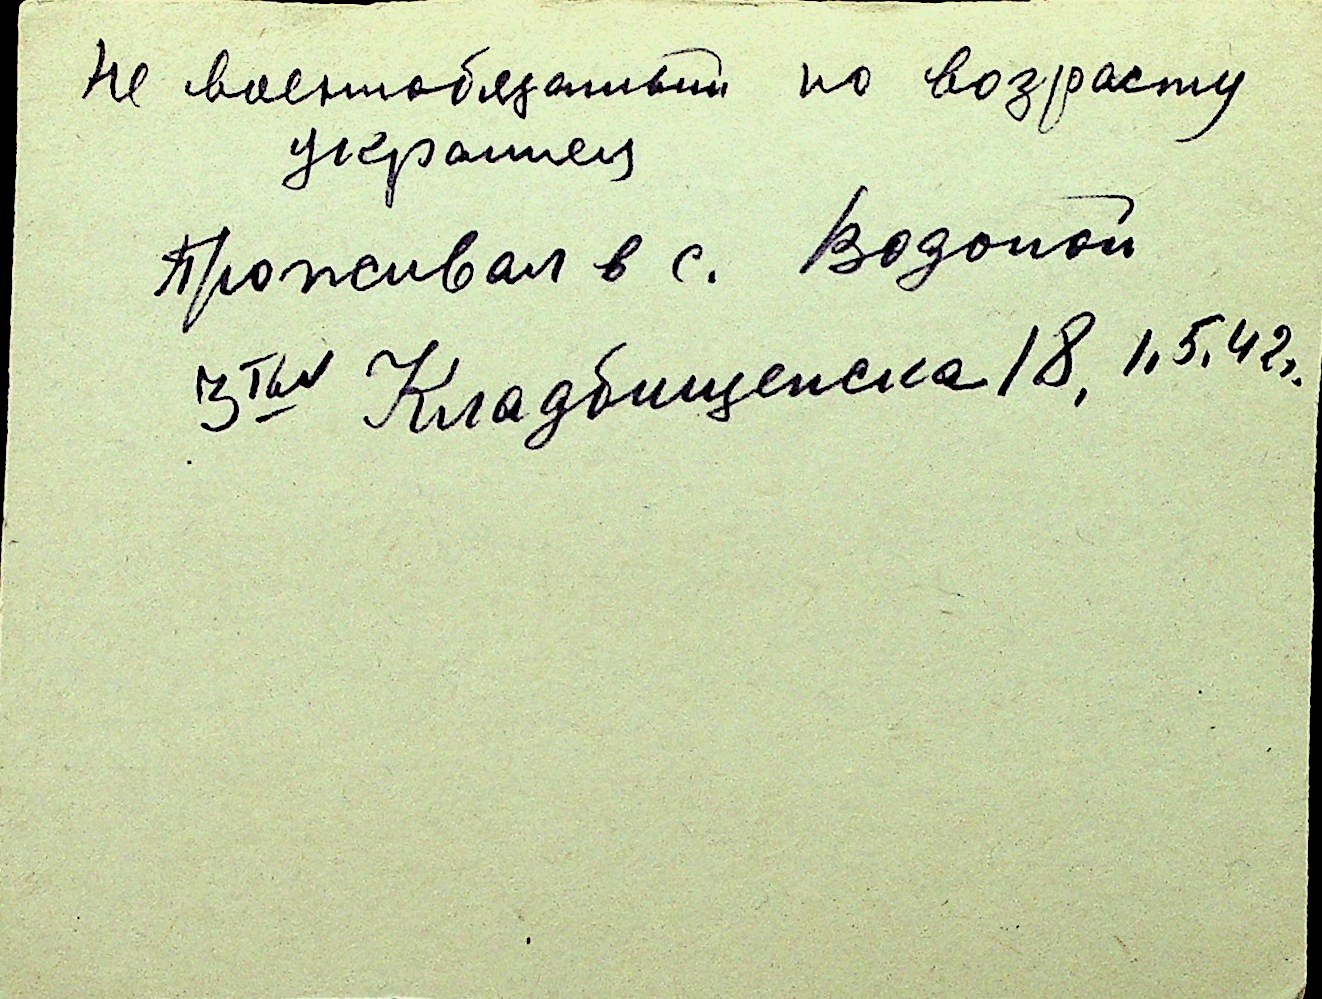 Не военнообязанный по возрасту
украинец
Проживал в с. Водопой
3тья Кладбищенска 18, 1.5.42г.